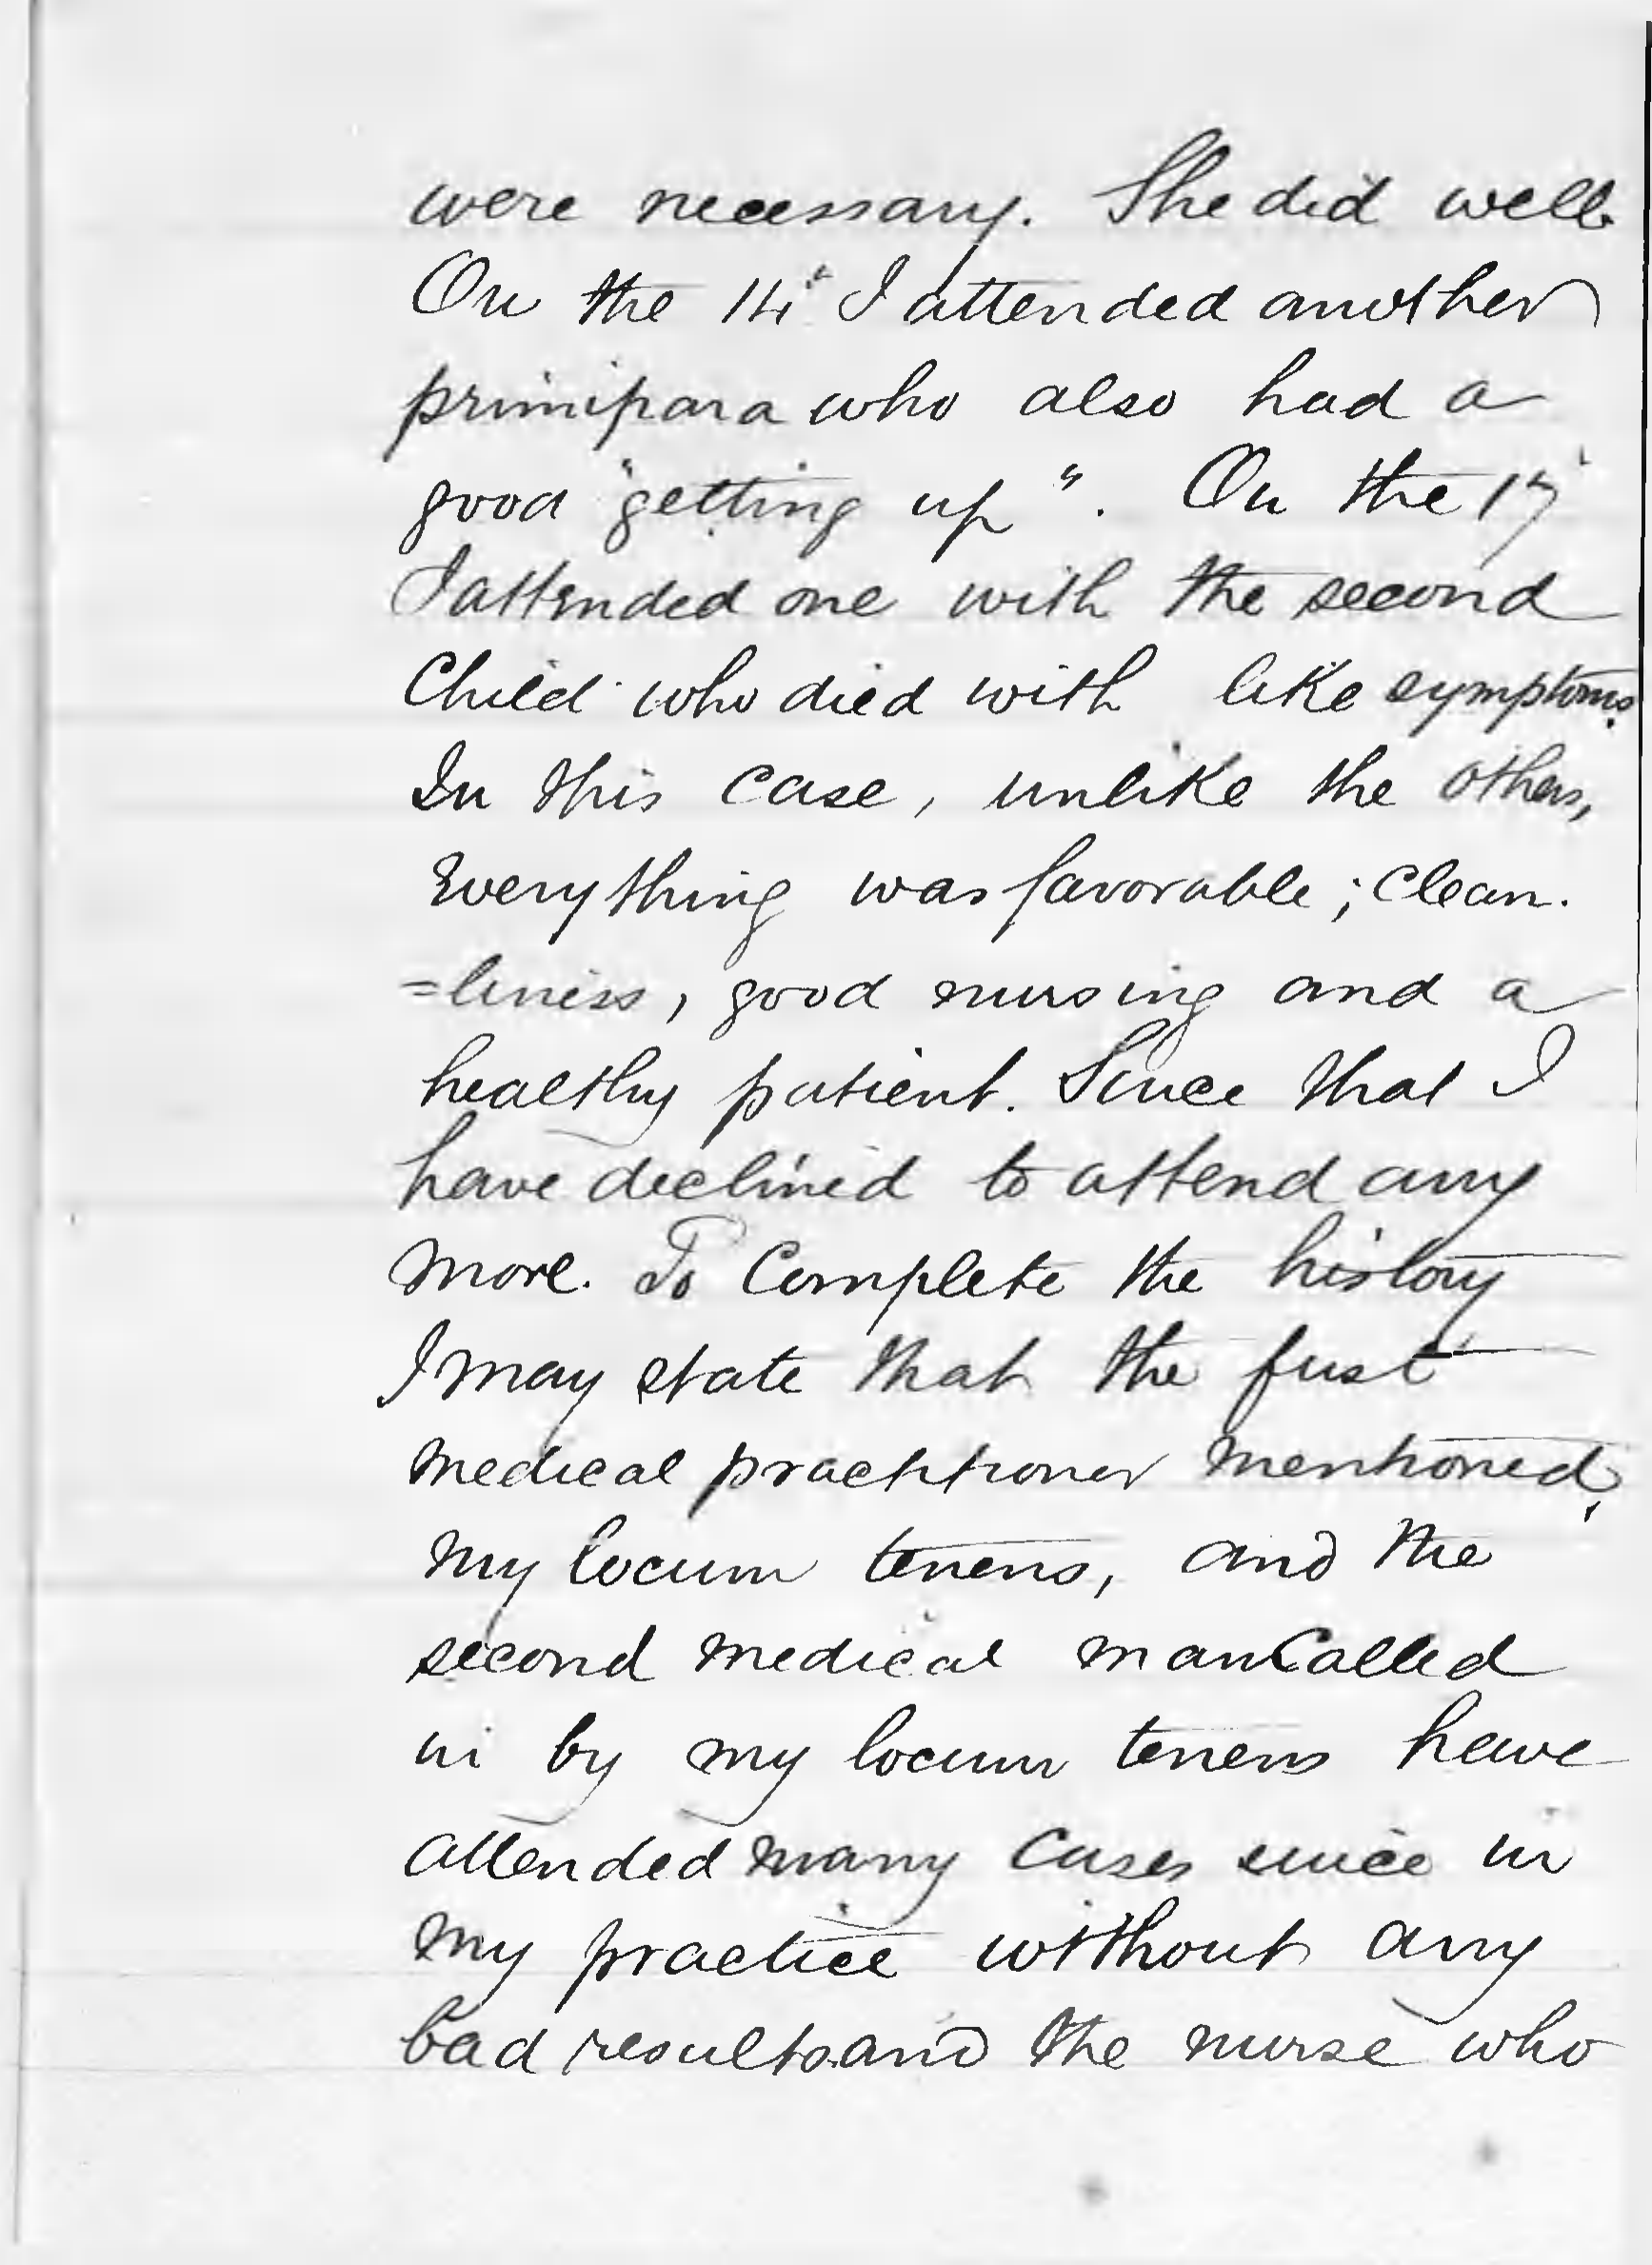 were necessary. She did well.
On the 14' I attended another
primipara who also had a
good "getting up". On the 17'
I attended one with the second
Child who died with like symptoms.
In this case, unlike the others,
Everything was favorable; Clean.
=liness, good nursing and a
healthy patient. Since that I
have declined to attend any
more. To Complete the history
I may state that the first
medical practitioner mentioned,
my locum tenens, and the
second medical man Called
in by my locum tenens have
attended many Cases since in
my practice without any
bad results and the nurse who